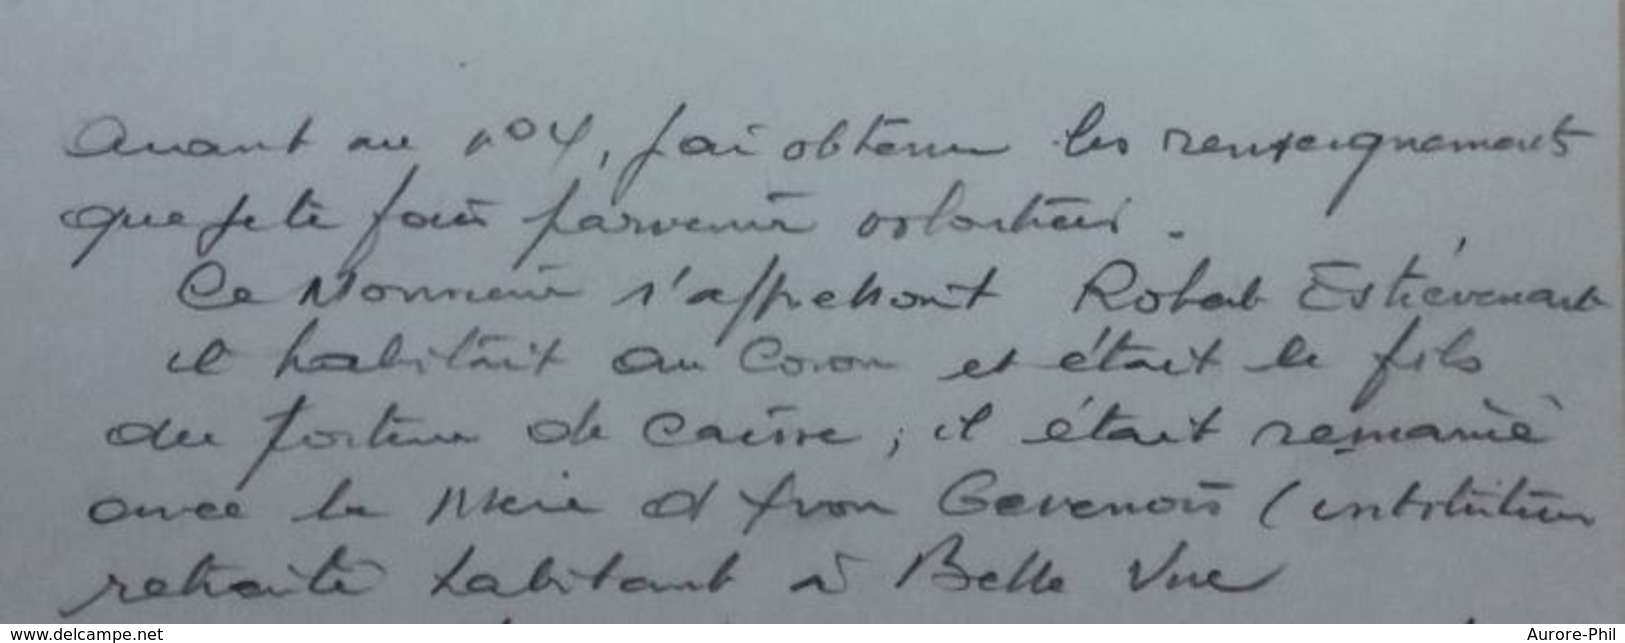 Quant au n°4, j'ai obtenu les renseignements
que je te fais parvenir
Ce Monsieur s'appelait Robert Estiévenart
il habitait au Coron et était le fils
du porteur de caisse, il était remarié
avec la Mère d'Yvon Gevenois (instituteur
retraité habitant à Belle Vue
www.delcampe.net
Aurore-Phil